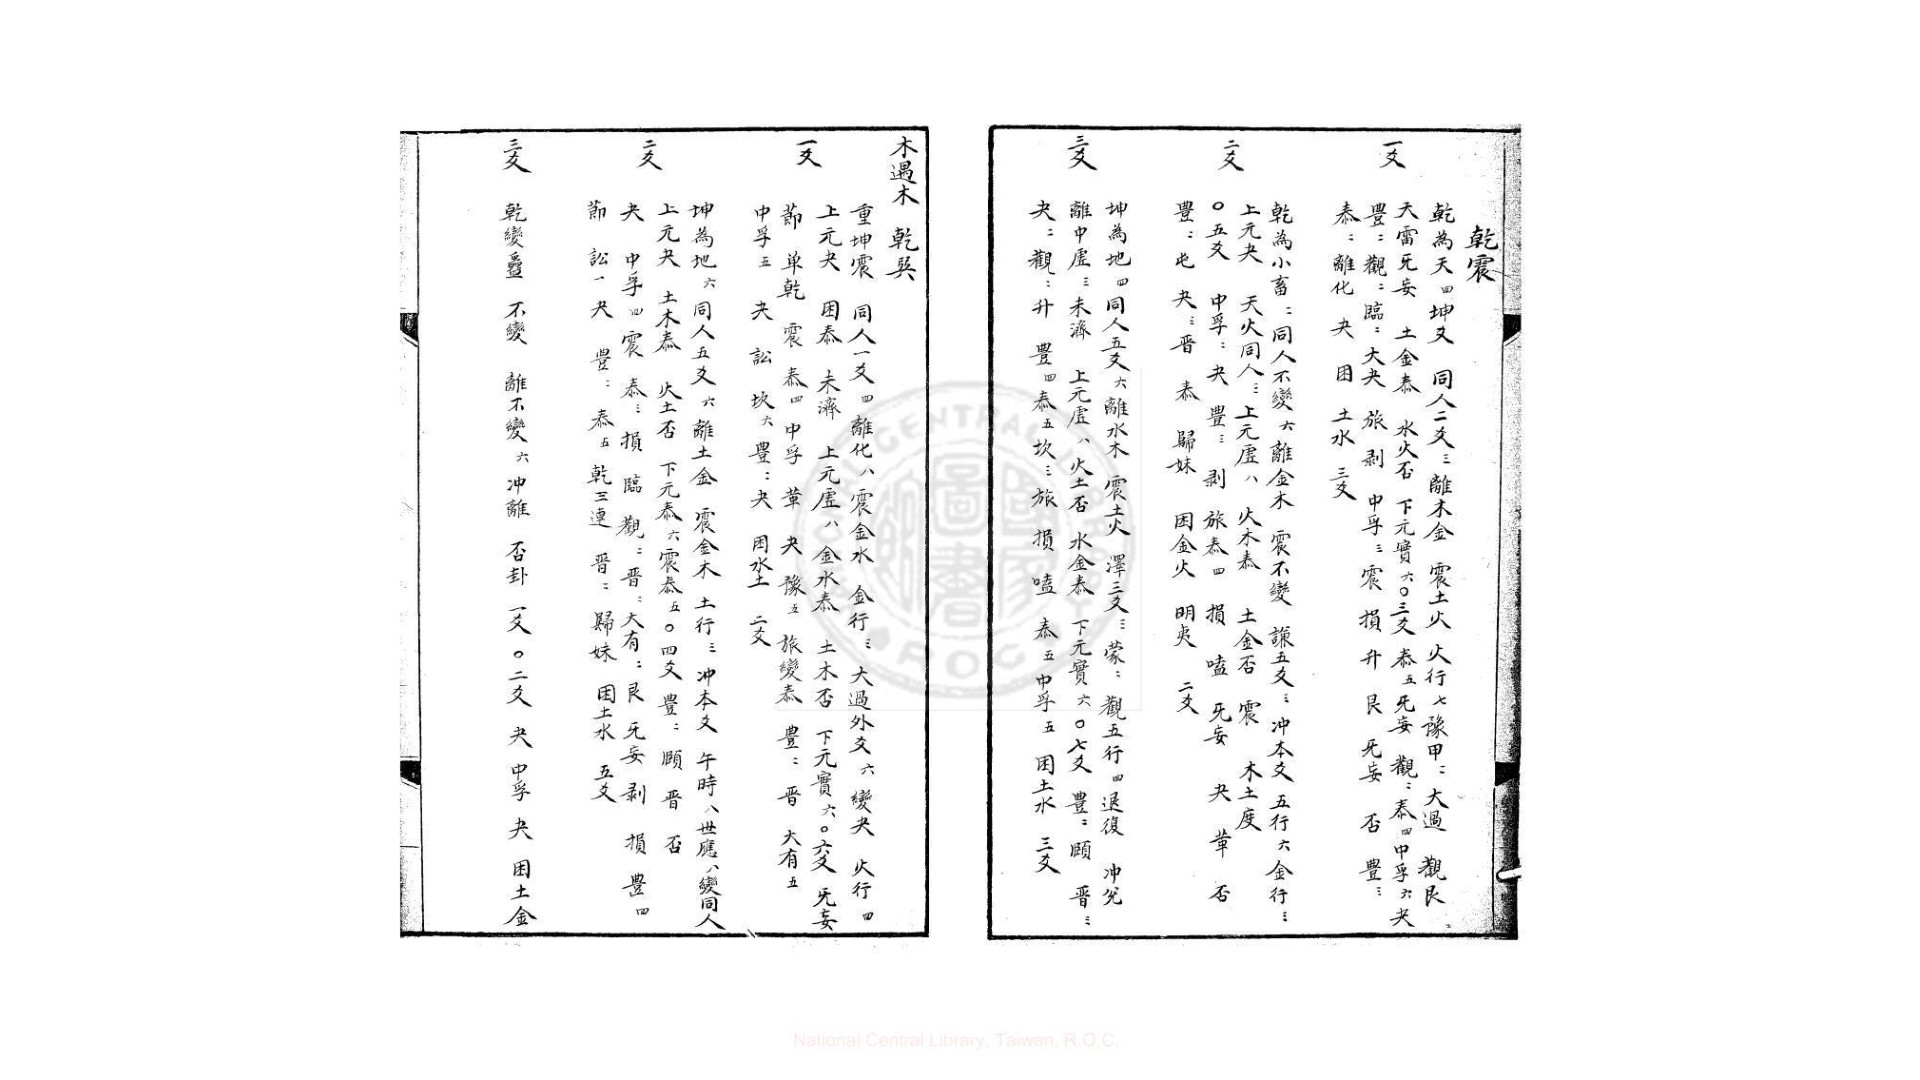 乾震
一爻
乾為天四坤爻 同人二爻三離木金 震土火 火行七豫甲二大過 觀艮二
天雷旡妄 土金泰 水火否 下元實六〇三爻泰五旡妄 觀二泰四中孚六夬
豐二觀二臨二大夬 旅剥 中孚三震 損 升 艮 旡妄 否 豐三
泰二離化 夬 困 土水 三爻
二爻
乾為小畜二同人不變六離金木 震不變 謙五爻三冲本爻 五行六金行三
上元夬 天火同人三上元虛八火木泰 土金否 震 木土度
〇五爻 中孚二夬 豐三剥 旅泰四 損 嗑 旡妄 夬 革 否
豐二屯 夬三晋 泰 歸妹 困金火 明夷 二爻
三爻
坤為地四同人五爻六離水木 震土火 澤三爻三蒙二觀五行四退復 冲兊
離中虛三未濟 上元虛八火土否 水金泰 下元實六〇七爻 豐二頤 晋三
夬二觀二升 豐四泰五坎三旅 損 嗑 泰五中孚五 困土水 三爻
木遇木 乾巽
一爻
重坤震 同人一爻四離化八震金水 金行三大過外爻六變夬 火行四
上元夬 困泰 未濟 上元虛八金水泰 土木否 下元實六〇六爻 旡妄
節 单乾 震泰四中孚 革 夬 豫五旅變泰 豐二晋 大有五
中孚五 夬 訟 坎六豐二夬 困水土 二爻
二爻
坤為地六同人五爻六離土金 震金木 土行三冲本爻 午時八世應八變同人
上元夬 土木泰 火土否 下元泰六震泰五〇四爻 豐二頤 晋 否
夬 中孚四震 泰三損 臨 觀二晋二大有二艮 旡妄 剥 損 豐四
節 訟一夬 豐二泰五乾三連 晋二歸妹 困土水 五爻
三爻
乾變 不變 離不變六冲離 否卦 一爻〇二爻 夬 中孚 夬 困土金
National Central Library, Taiwan, R.O.C.